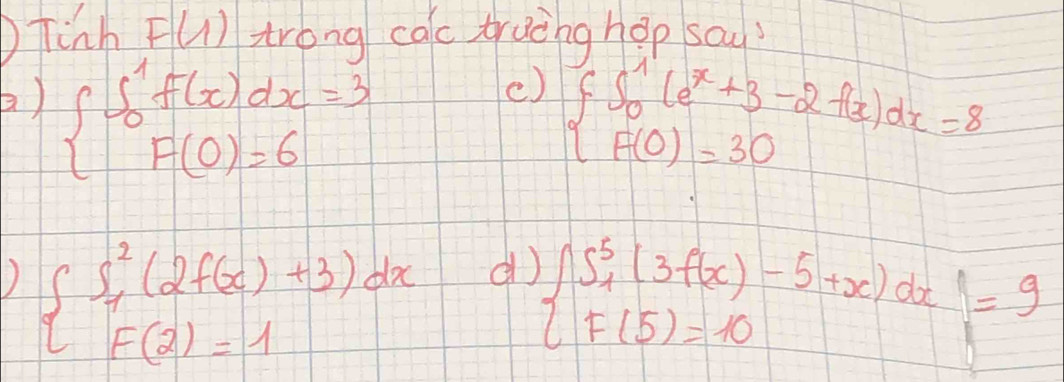 ) Tính F(1) trong các trường hợp sau:
a) { ∫₀¹ f(x) dx = 3
F(0) = 6
c) { ∫₀¹ (eˣ + 3 - 2 f(x) dx = 8
F(0) = 30
) { ∫₁² (2f(x) + 3) dx
F(2) = 1
d) { ∫₁⁵ (3f(x) - 5 + x) dx = 9
F(5) = 10